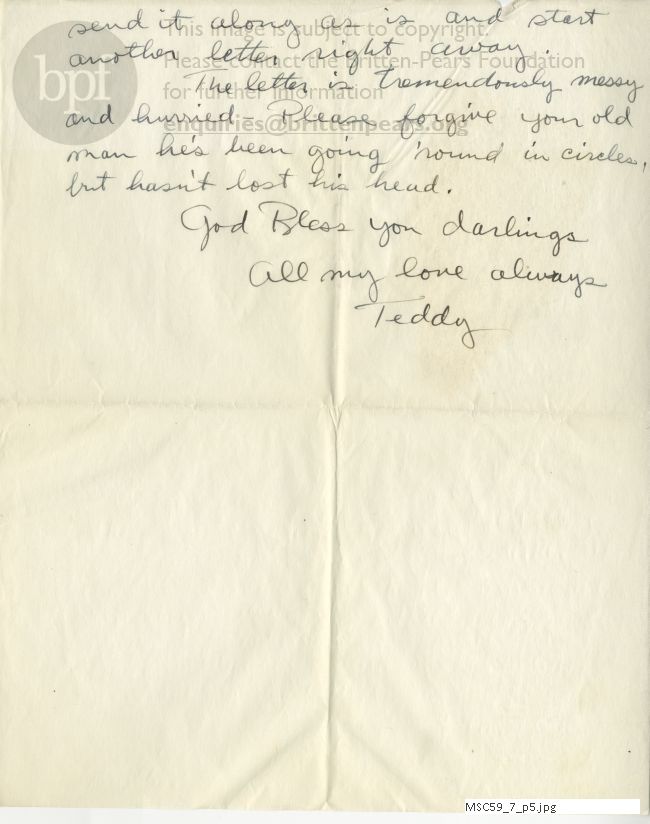 send it along as is and start
another letter right away.
The letter is tremendously messy
and hurried – Please forgive your old
man he's been going 'round in circles,
but hasn't lost his head.
God Bless you darlings
All my love always
Teddy
bpf
This image is subject to copyright.
Please contact the Britten-Pears Foundation
for further information
enquiries@brittenpears.org
MSC59_7_p5.jpg